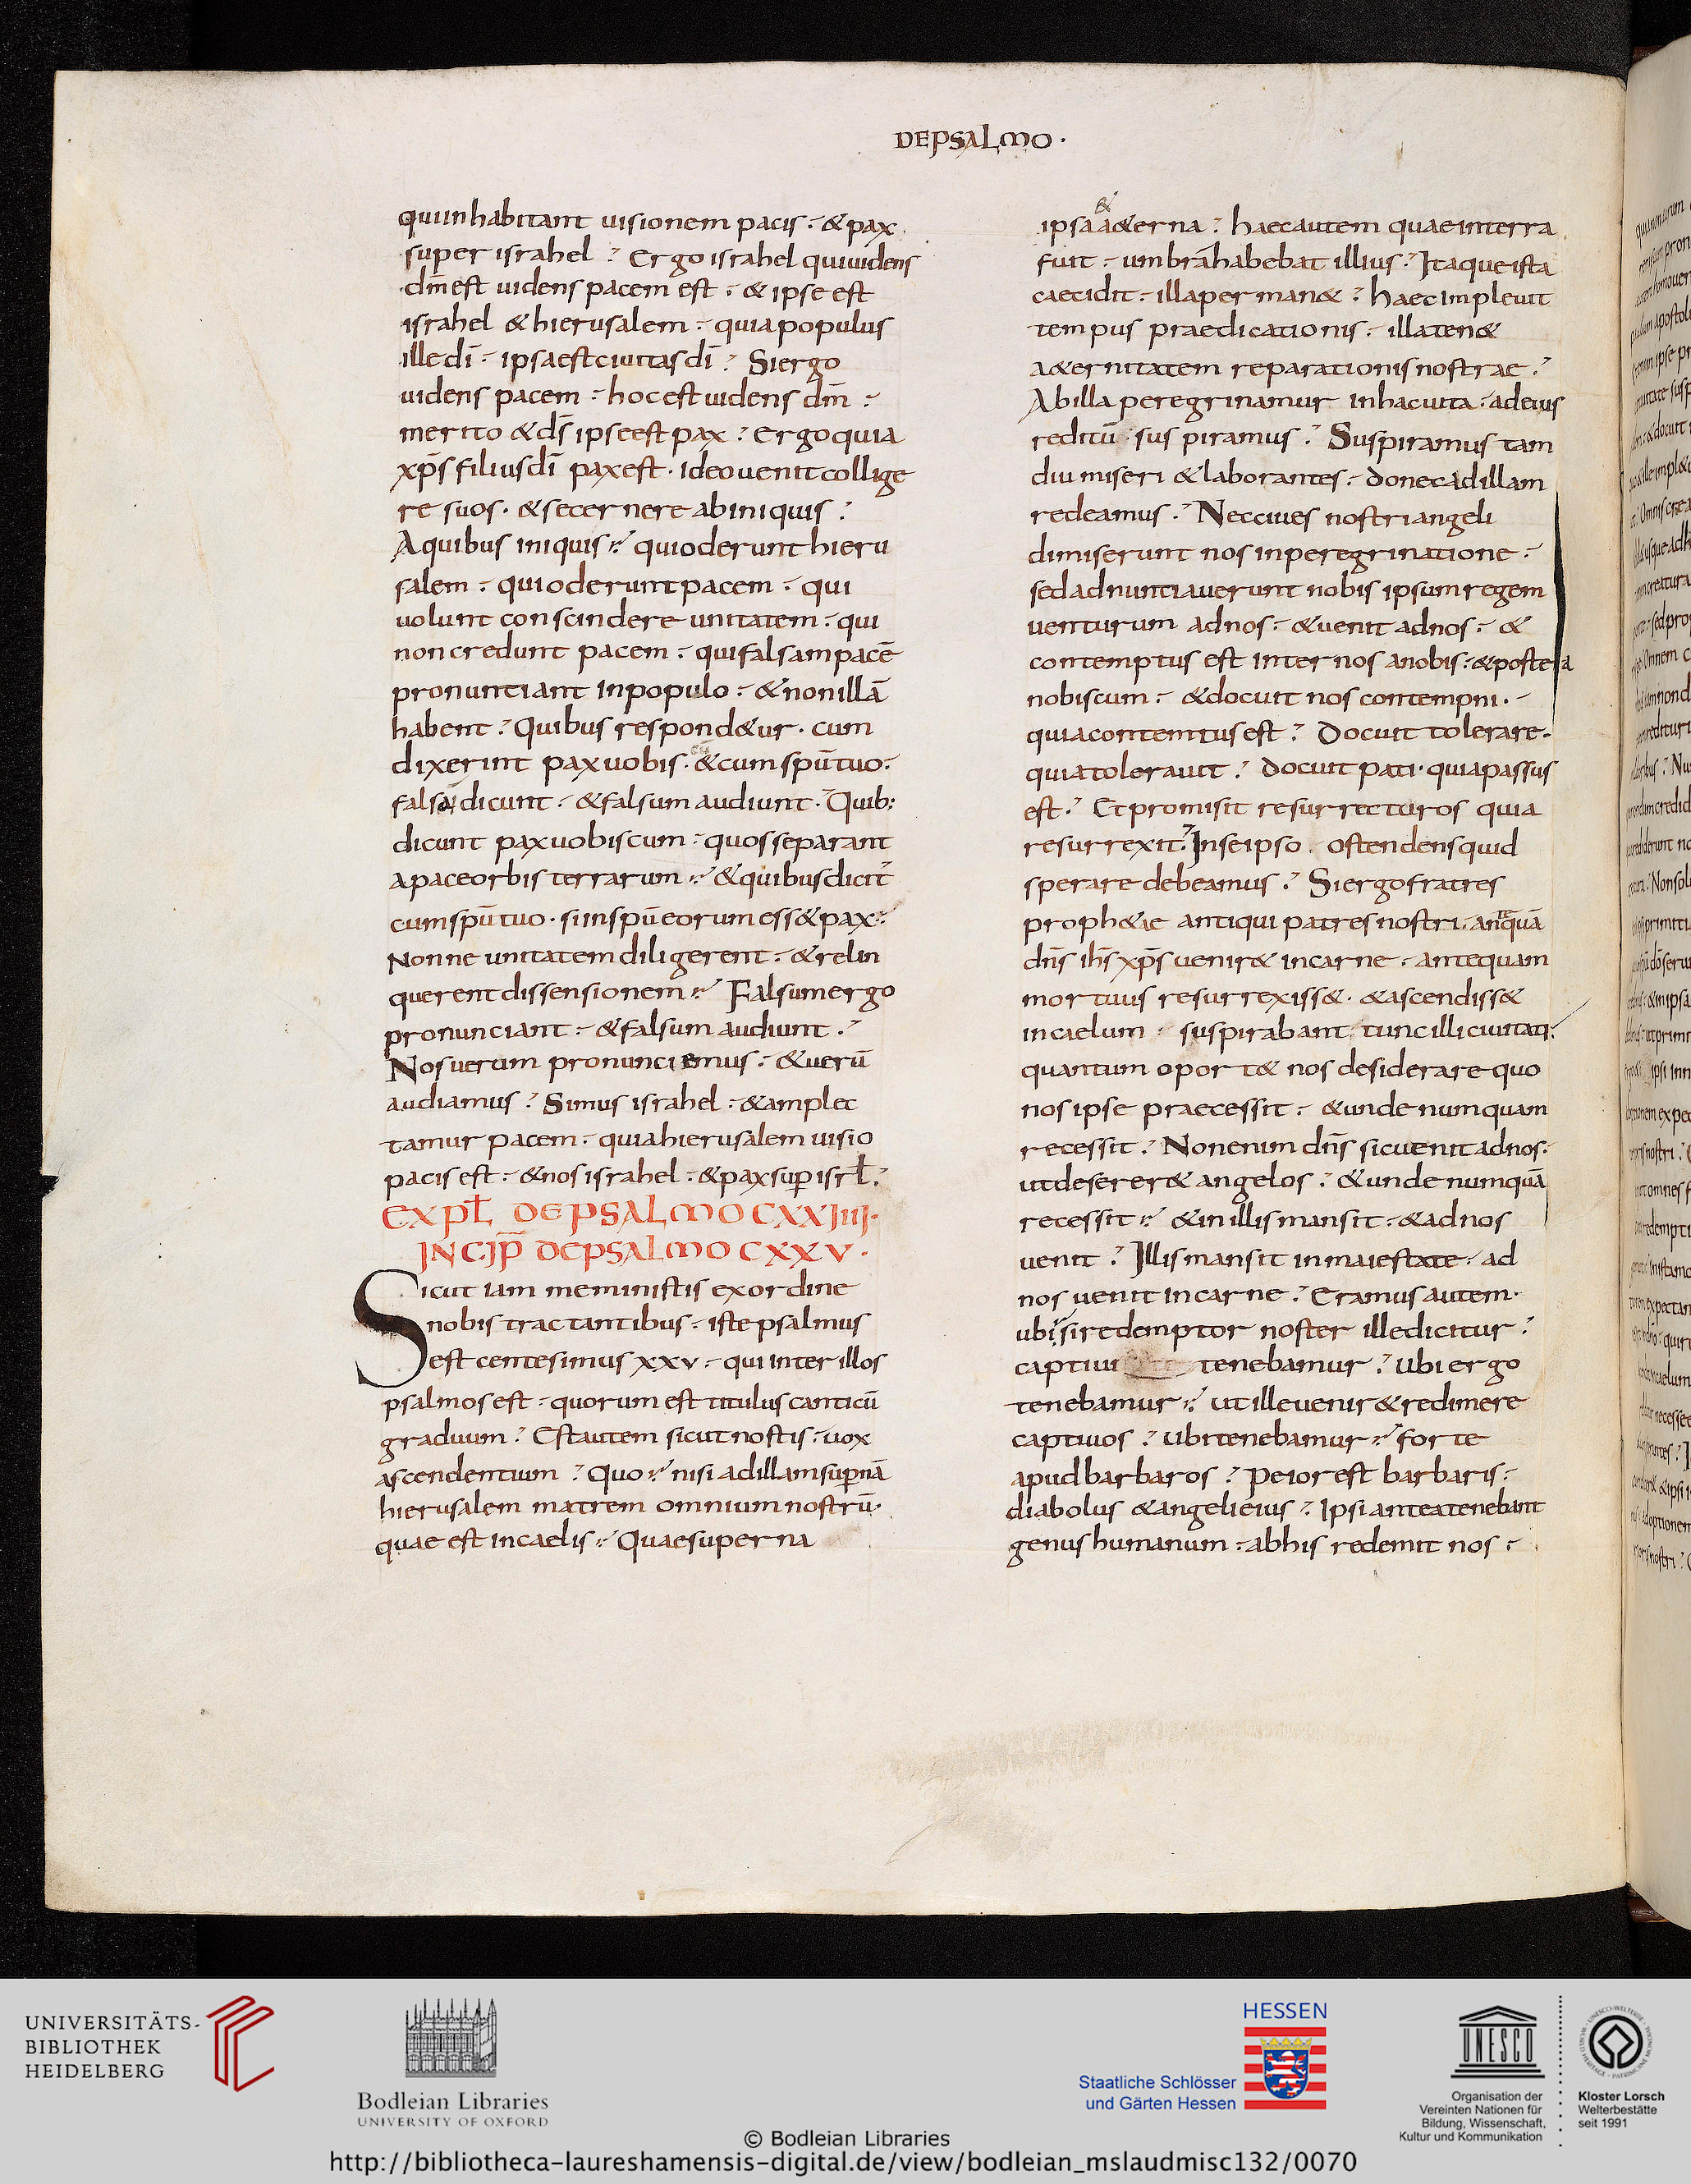 DEPSALMO·
qui inhabitant uisionem pacis · & pax
super israhel ? Ergo israhel qui uidens
dm̄ est uidens pacem est · & ipse est
israhel & hierusalem · quia populus
ille dī · ipsa est ciuitas dī ? Si ergo
uidens pacem · hoc est uidens dm̄ ·
merito & ds̄ ipse est pax ? Ergo quia
xp̄s filius dī pax est · Ideo uenit collige
re suos · & secernere ab iniquis ?
A quibus iniquis ? qui oderunt hieru
salem · qui oderunt pacem · qui
uolunt conscindere unitatem · qui
non credunt pacem · qui falsam pacē
pronuntiant in populo · & non illā
habent ? Quibus respond&ur · cum
dixerint pax uobis · & cum spū tuo ·
falsa dicunt · & falsum audiunt · Quib:
dicunt pax uobiscum · quos separant
a pace orbis terrarum ? & quibus dicit̄
cum spū tuo · si in spū eorum ess& pax ·
Nonne unitatem diligerent · & relin
querent dissensionem ? Falsum ergo
pronunciant · & falsum audiunt ·
Nos uerum pronunciemus · & uerū
audiamus ? Simus israhel · & amplec
tamur pacem · quia hierusalem uisio
pacis est · & nos israhel · & pax sup isrl̄ ·
EXPL̄ DE PSALMO CXXIIII·
INCIP̄ DE PSALMO CXXV·
Sicut iam meministis ex ordine
nobis tractantibus · iste psalmus
est centesimus xxv · qui inter illos
psalmos est · quorum est titulus canticū
graduum ? Est autem sicut nostis · uox
ascendentium ? Quo ? nisi ad illam supnā
hierusalem matrem omnium nostrū ·
quae est in caelis ? Quae superna
ipsa & a&erna ? haec autem quae in terra
fuit · umbrā habebat illius ? Itaque ista
caecidit · illa perman& ? haec impleuit
tempus praedicationis · illa ten&
a&ernitatem reparationis nostrae ?
Ab illa peregrinamur in hac uita · ad eius
reditū · suspiramus ? Suspiramus tam
diu miseri & laborantes · donec ad illam
redeamus ? Nec ciues nostri angeli
dimiserunt nos in peregrinatione ·
sed adnuntiauerunt nobis ipsum regem
uenturum ad nos · & uenit ad nos · &
contemptus est inter nos a nobis · & postea
nobiscum · & docuit nos contempni ·
quia contemtus est ? Docuit tolerare ·
quia tolerauit ? docuit pati · quia passus
est ? Et promisit resurrecturos quia
resurrexit ? In se ipso ostendens quid
sperare debeamus ? Si ergo fratres
proph&ae antiqui patres nostri · antequā
dn̄s ih̄s xp̄s uenir& in carne · antequam
mortuus resurrexiss& · & ascendiss&
in caelum · suspirabant tunc illi ciuitati
quantum oport& nos desiderare quo
nos ipse praecessit · & unde numquam
recessit ? Non enim dn̄s sic uenit ad nos ·
ut deserer& angelos ? & unde numquā
recessit ? & in illis mansit · & ad nos
uenit ? Illis mansit in maiestate · ad
nos uenit in carne ? Eramus autem ·
ubi si redemptor noster ille dicitur ?
captiui tenebamur ? ubi ergo
tenebamur ? ut ille uenir& redimere
captiuos ? ubi tenebamur ? forte
apud barbaros ? Peior est barbaris ·
diabolus & angeli eius ? Ipsi antea tenebant
genus humanum · ab his redemit nos ·
UNIVERSITÄTS-
BIBLIOTHEK
HEIDELBERG
Bodleian Libraries
UNIVERSITY OF OXFORD
HESSEN
Staatliche Schlösser
und Gärten Hessen
UNESCO
Organisation der
Vereinten Nationen für
Bildung, Wissenschaft,
Kultur und Kommunikation
Kloster Lorsch
Welterbestätte
seit 1991
© Bodleian Libraries
http://bibliotheca-laureshamensis-digital.de/view/bodleian_mslaudmisc132/0070